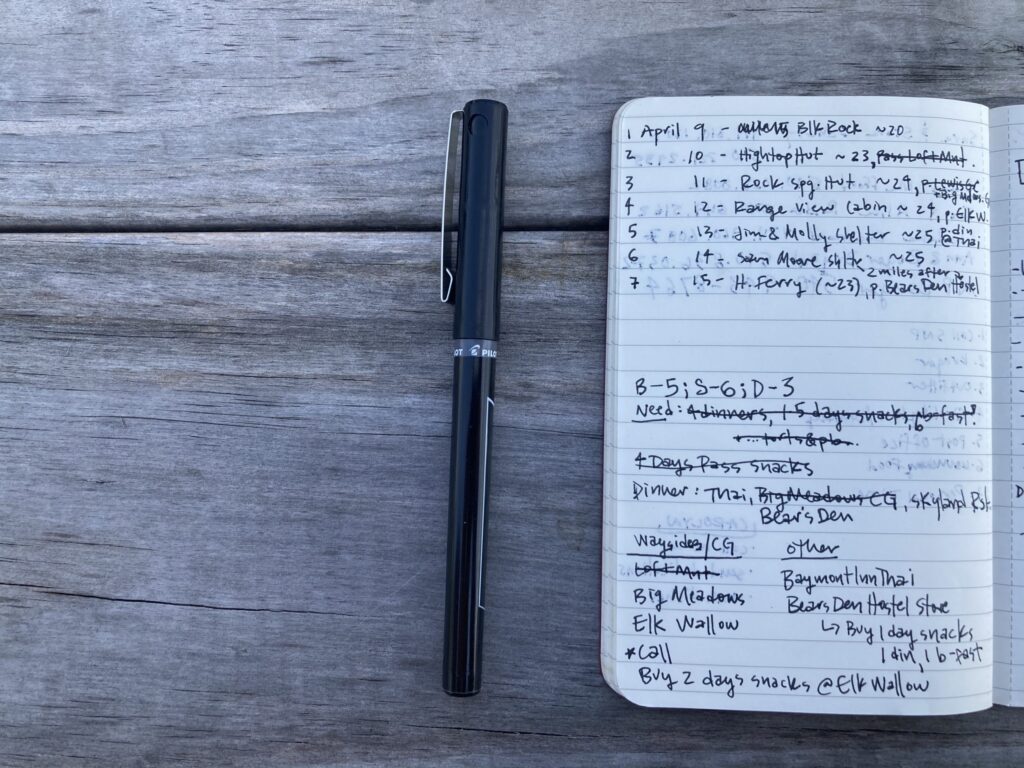 PILOT
1 April 9 - Blk Rock ~20
2 10 - Hightop Hut ~ 23, pass Loft Mnt.
3 11 - Rock spg. Hut ~24, p. Lewis GC
+ Big Mdws. G
4 12 - Range View Cabin ~ 24, p. Elk W.
5 13 - Jim & Molly shelter ~25, p. din @ Thai
6 14 - Sam Moore shltr ~25
2 miles after
7 15 - H. Ferry (~23), p. Bears Den Hostel
B-5; S-6; D-3
Need: 4 dinners, 1 5 days snacks, b-fast?
+ ... torts & pb.
4 Days Pass snacks
Dinner: Thai, Big Meadows CG, Skyland Rst.
Bear's Den
Waysides/CG
Loft Mnt
Big Meadows
Elk Wallow
*Call
other
Baymont Inn Thai
Bears Den Hostel Store
↳ Buy 1 day snacks
1 din, 1 b-fast
Buy 2 days snacks @ Elk Wallow